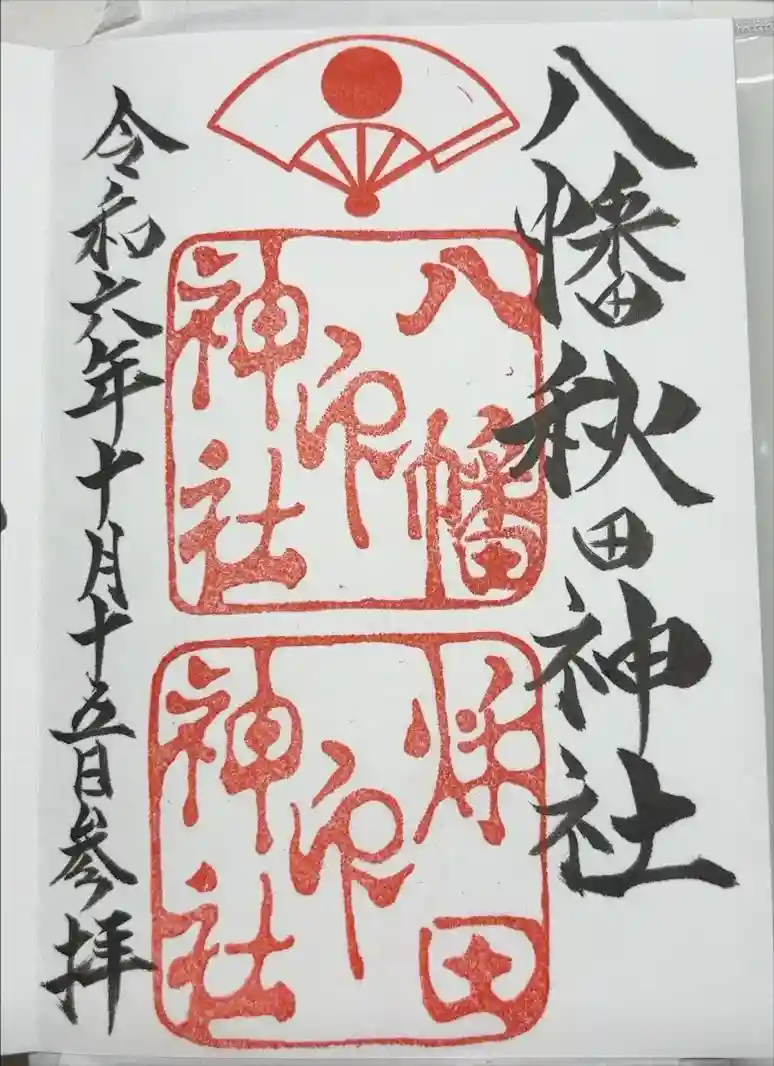 八幡秋田神社
八幡
神社
印
秌田
神社
印
令和六年十月十五日参拝